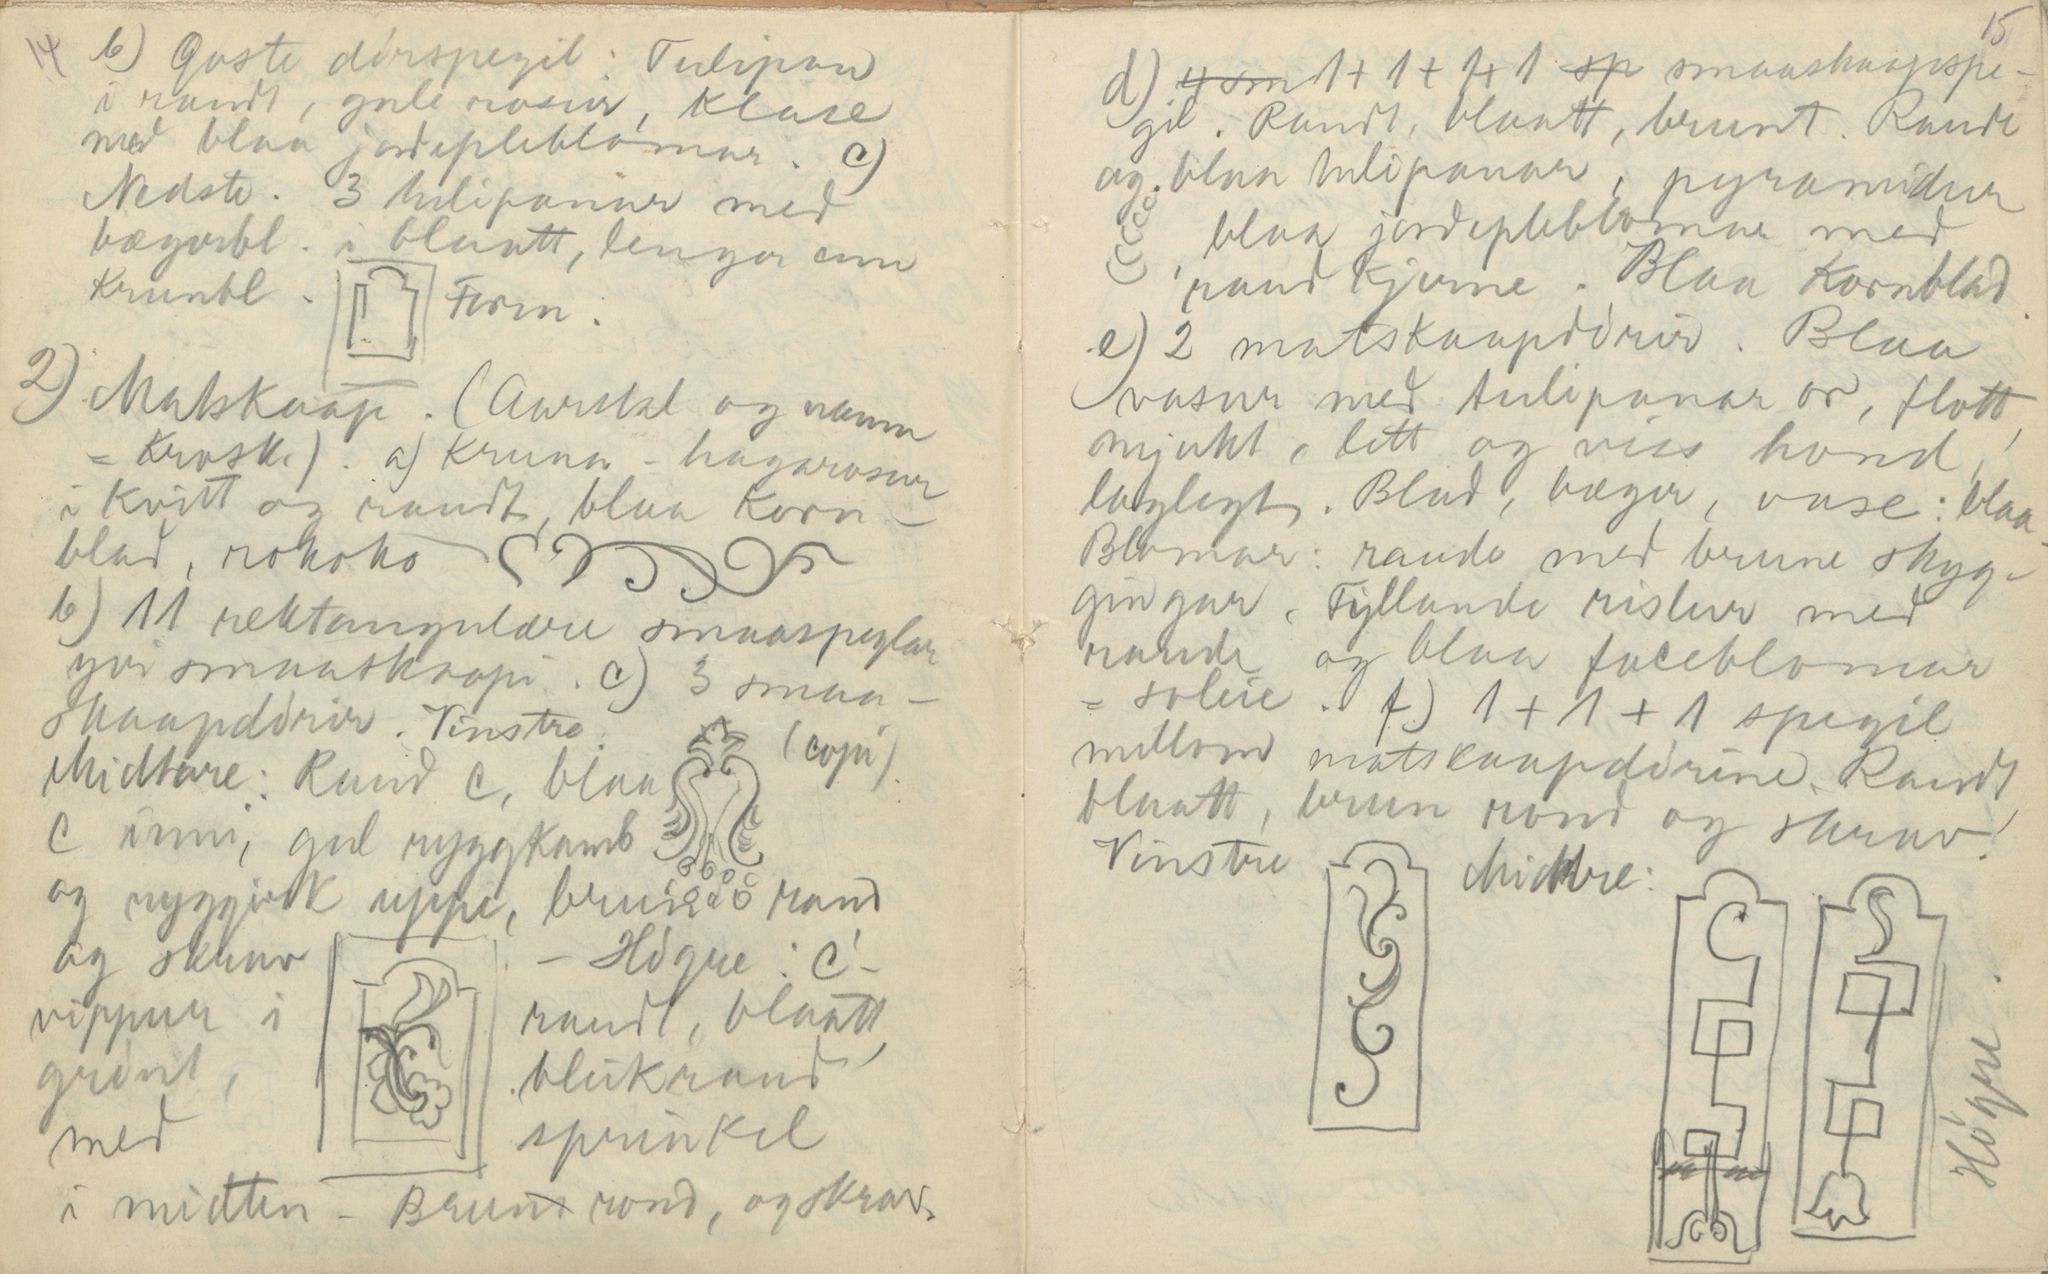 14
b) Gøste dørspegil: Tulipan
i raudt, gule rosur, klase
med blaa jordepleblomar. c)
Nedste. 3 tulipanar med
bægerbl. i blaatt, lenger enn
krunbl. Form.
2) Matskaap. (Aarstal og namn
= Krosk.). a) Kruna - hagarosur
i kvitt og raudt, blaa korn-
blad, rokoko
b) 11 rektangulære smaaspeglar
yvi smaaskaapi. c) 3 smaa-
skaapdørir. Vinstre:
(copi).
Midtare: Raud C, blaa
C inni, gul ryggkamb
og ryggjok uppe, brun rand
og skrav - Høgre: C
vippur i raudt, blaatt,
grønt, bleikraud
med sprinkel
i midten - Brun rond, og skrav.
15
d) 4 sm 1+1+1+1 sp smaaskaapspe-
gil. Raudt, blaatt, brunt. Raude
og blaa tulipanar, pyramidur
, blaa jordepleblomar med
raud kjerne. Blaa kornblad.
e) 2 matskaapdørir. Blaa
vasur med tulipanar or, flott,
mjukt, lett og viss hond,
laglegt. Blad, bæger, vase: blaa-
Blomar: raude med brune skyg-
gingar. Fyllande ristur med
raude og blaa faceblomar
= soleie. f) 1+1+1 spegil
millom matskaapdørine. Raudt
blaatt, brun rond og skrav.
Vinstre Midtre:
Høgre.